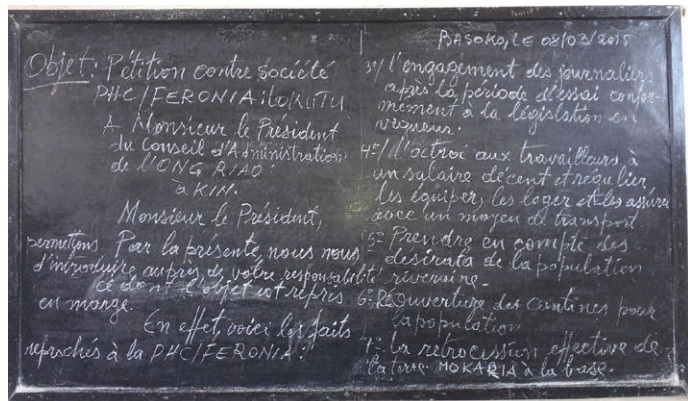 Objet: Pétition contre société
PHC/FERONIA: LOKUTU
A Monsieur le Président
du Conseil d'Administration
de l'ONG RIAO
à KIN.
Monsieur le Président,
Par la présente, nous nous
permettons d'introduire auprès de votre responsabilité
ce dont l'objet est repris
en marge.
En effet, voici les faits
reprochés à la PHC/FERONIA:
BASOKO, LE 08/03/2015
3º/ l'engagement des journaliers
après la période d'essai confor-
mément à la législation en
vigueur.
4º/ l'octroi aux travailleurs à
un salaire décent et régulier,
les équiper, les loger et les assurer
avec un moyen de transport.
5º Prendre en compte des
désirata de la population
riveraine.
6º Réouverture des cantines pour
la population
7º La rétrocession effective de
la terre MOKARIA à la base.